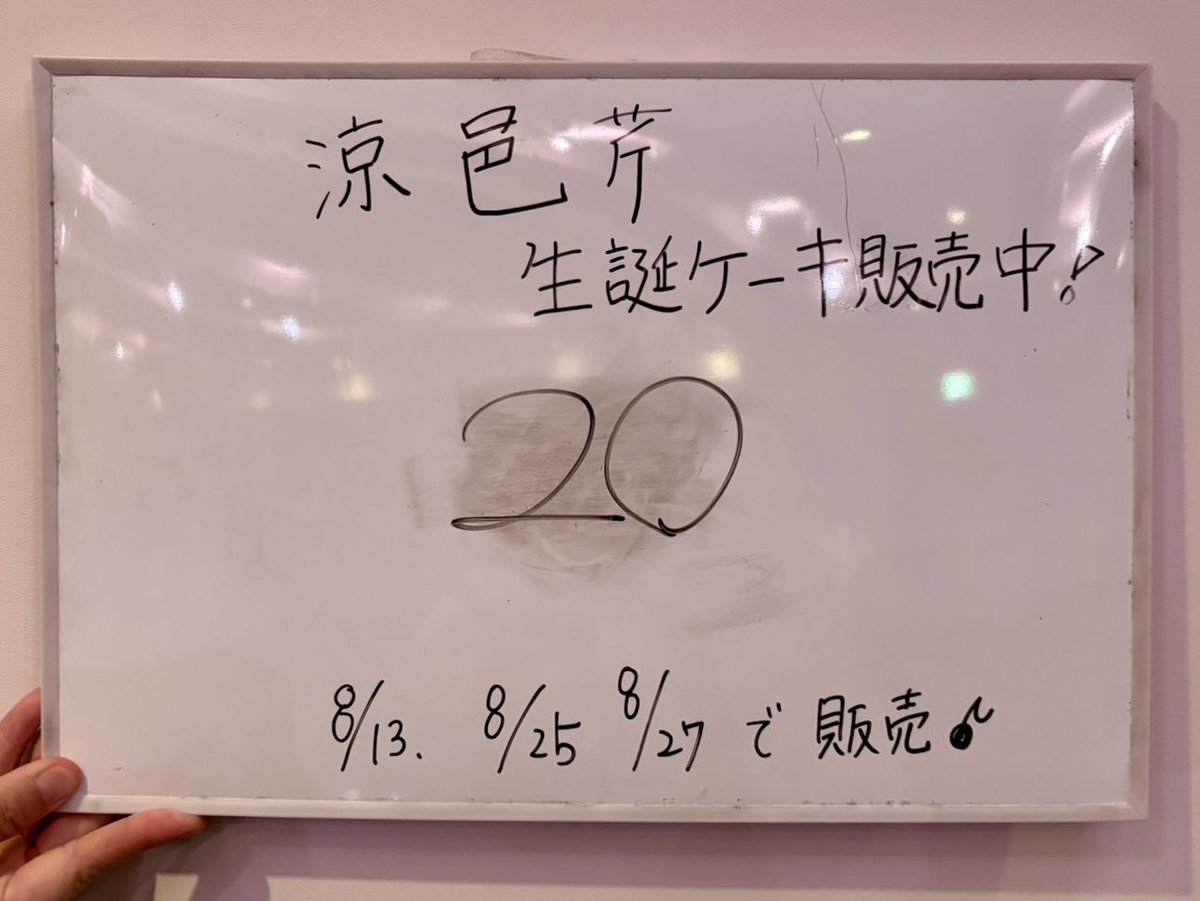 涼邑芹
生誕ケーキ販売中!
20
8/13. 8/25 8/27 で 販売♪